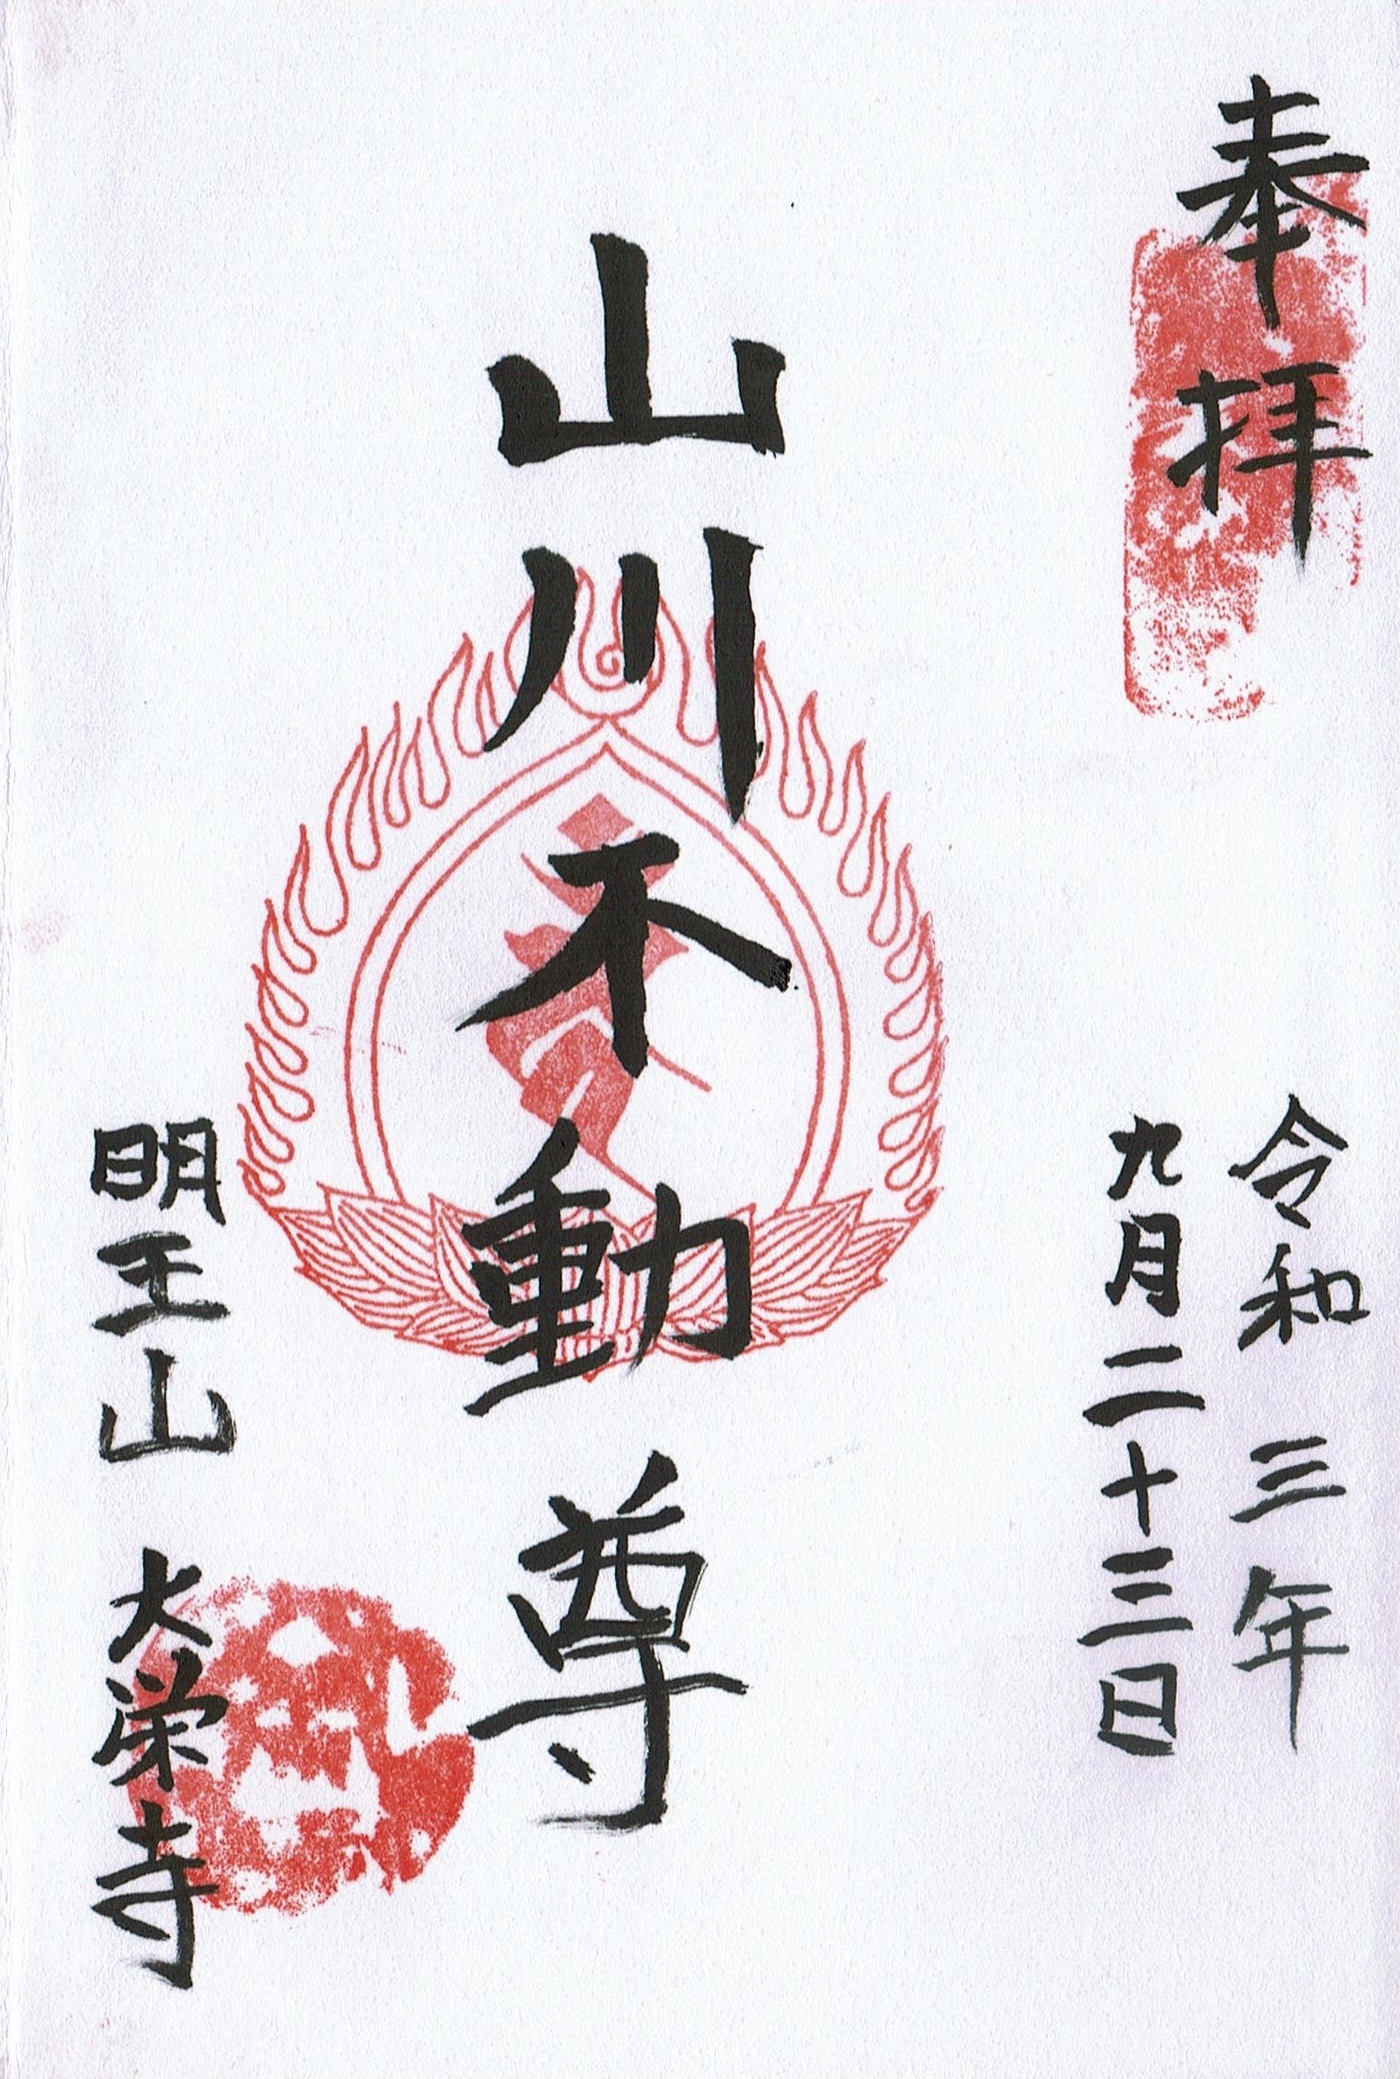 奉拝
令和三年
九月二十三日
山川不動尊
明王山 大栄寺